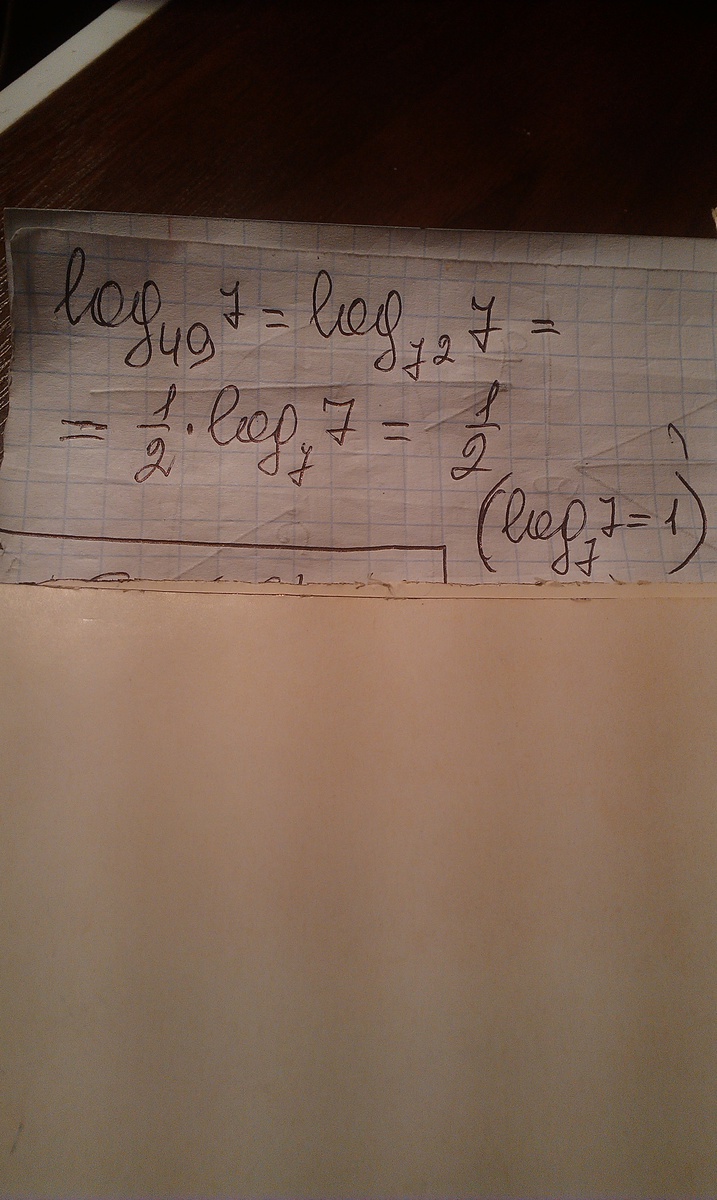 log₄₉ 7 = log₇2 7 =
= 1/2 · log₇ 7 = 1/2
(log₇ 7 = 1)